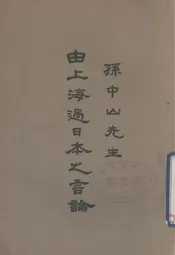 孫中山先生
由上海過日本之言論